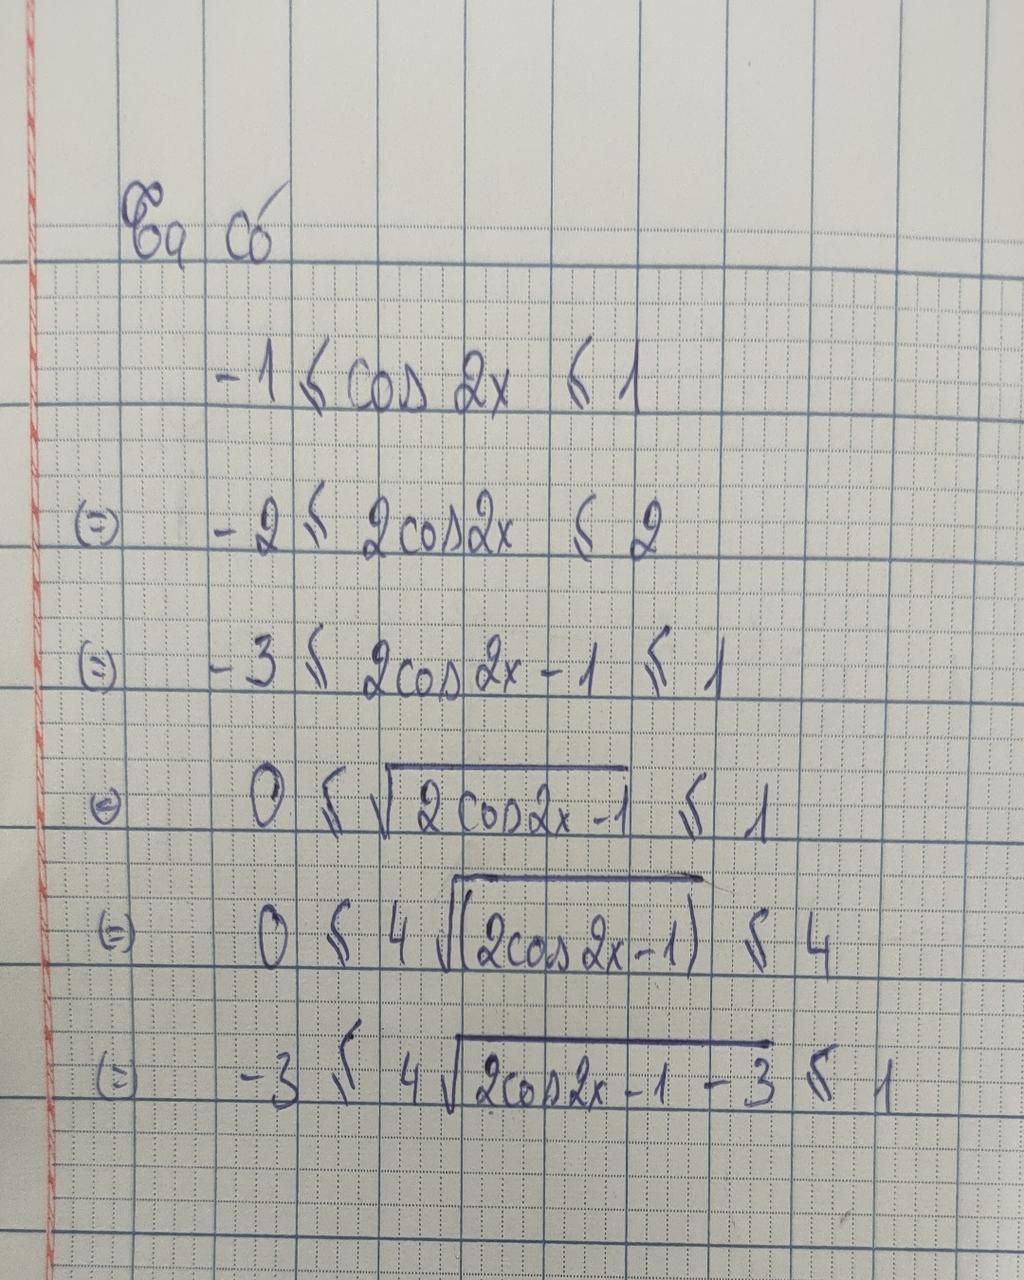 Ta có
-1 ≤ cos 2x ≤ 1
(=) -2 ≤ 2cos2x ≤ 2
(=) -3 ≤ 2cos2x - 1 ≤ 1
(=) 0 ≤ √(2cos2x - 1) ≤ 1
(=) 0 ≤ 4√((2cos2x - 1)) ≤ 4
(=) -3 ≤ 4√(2cos2x - 1 - 3) ≤ 1